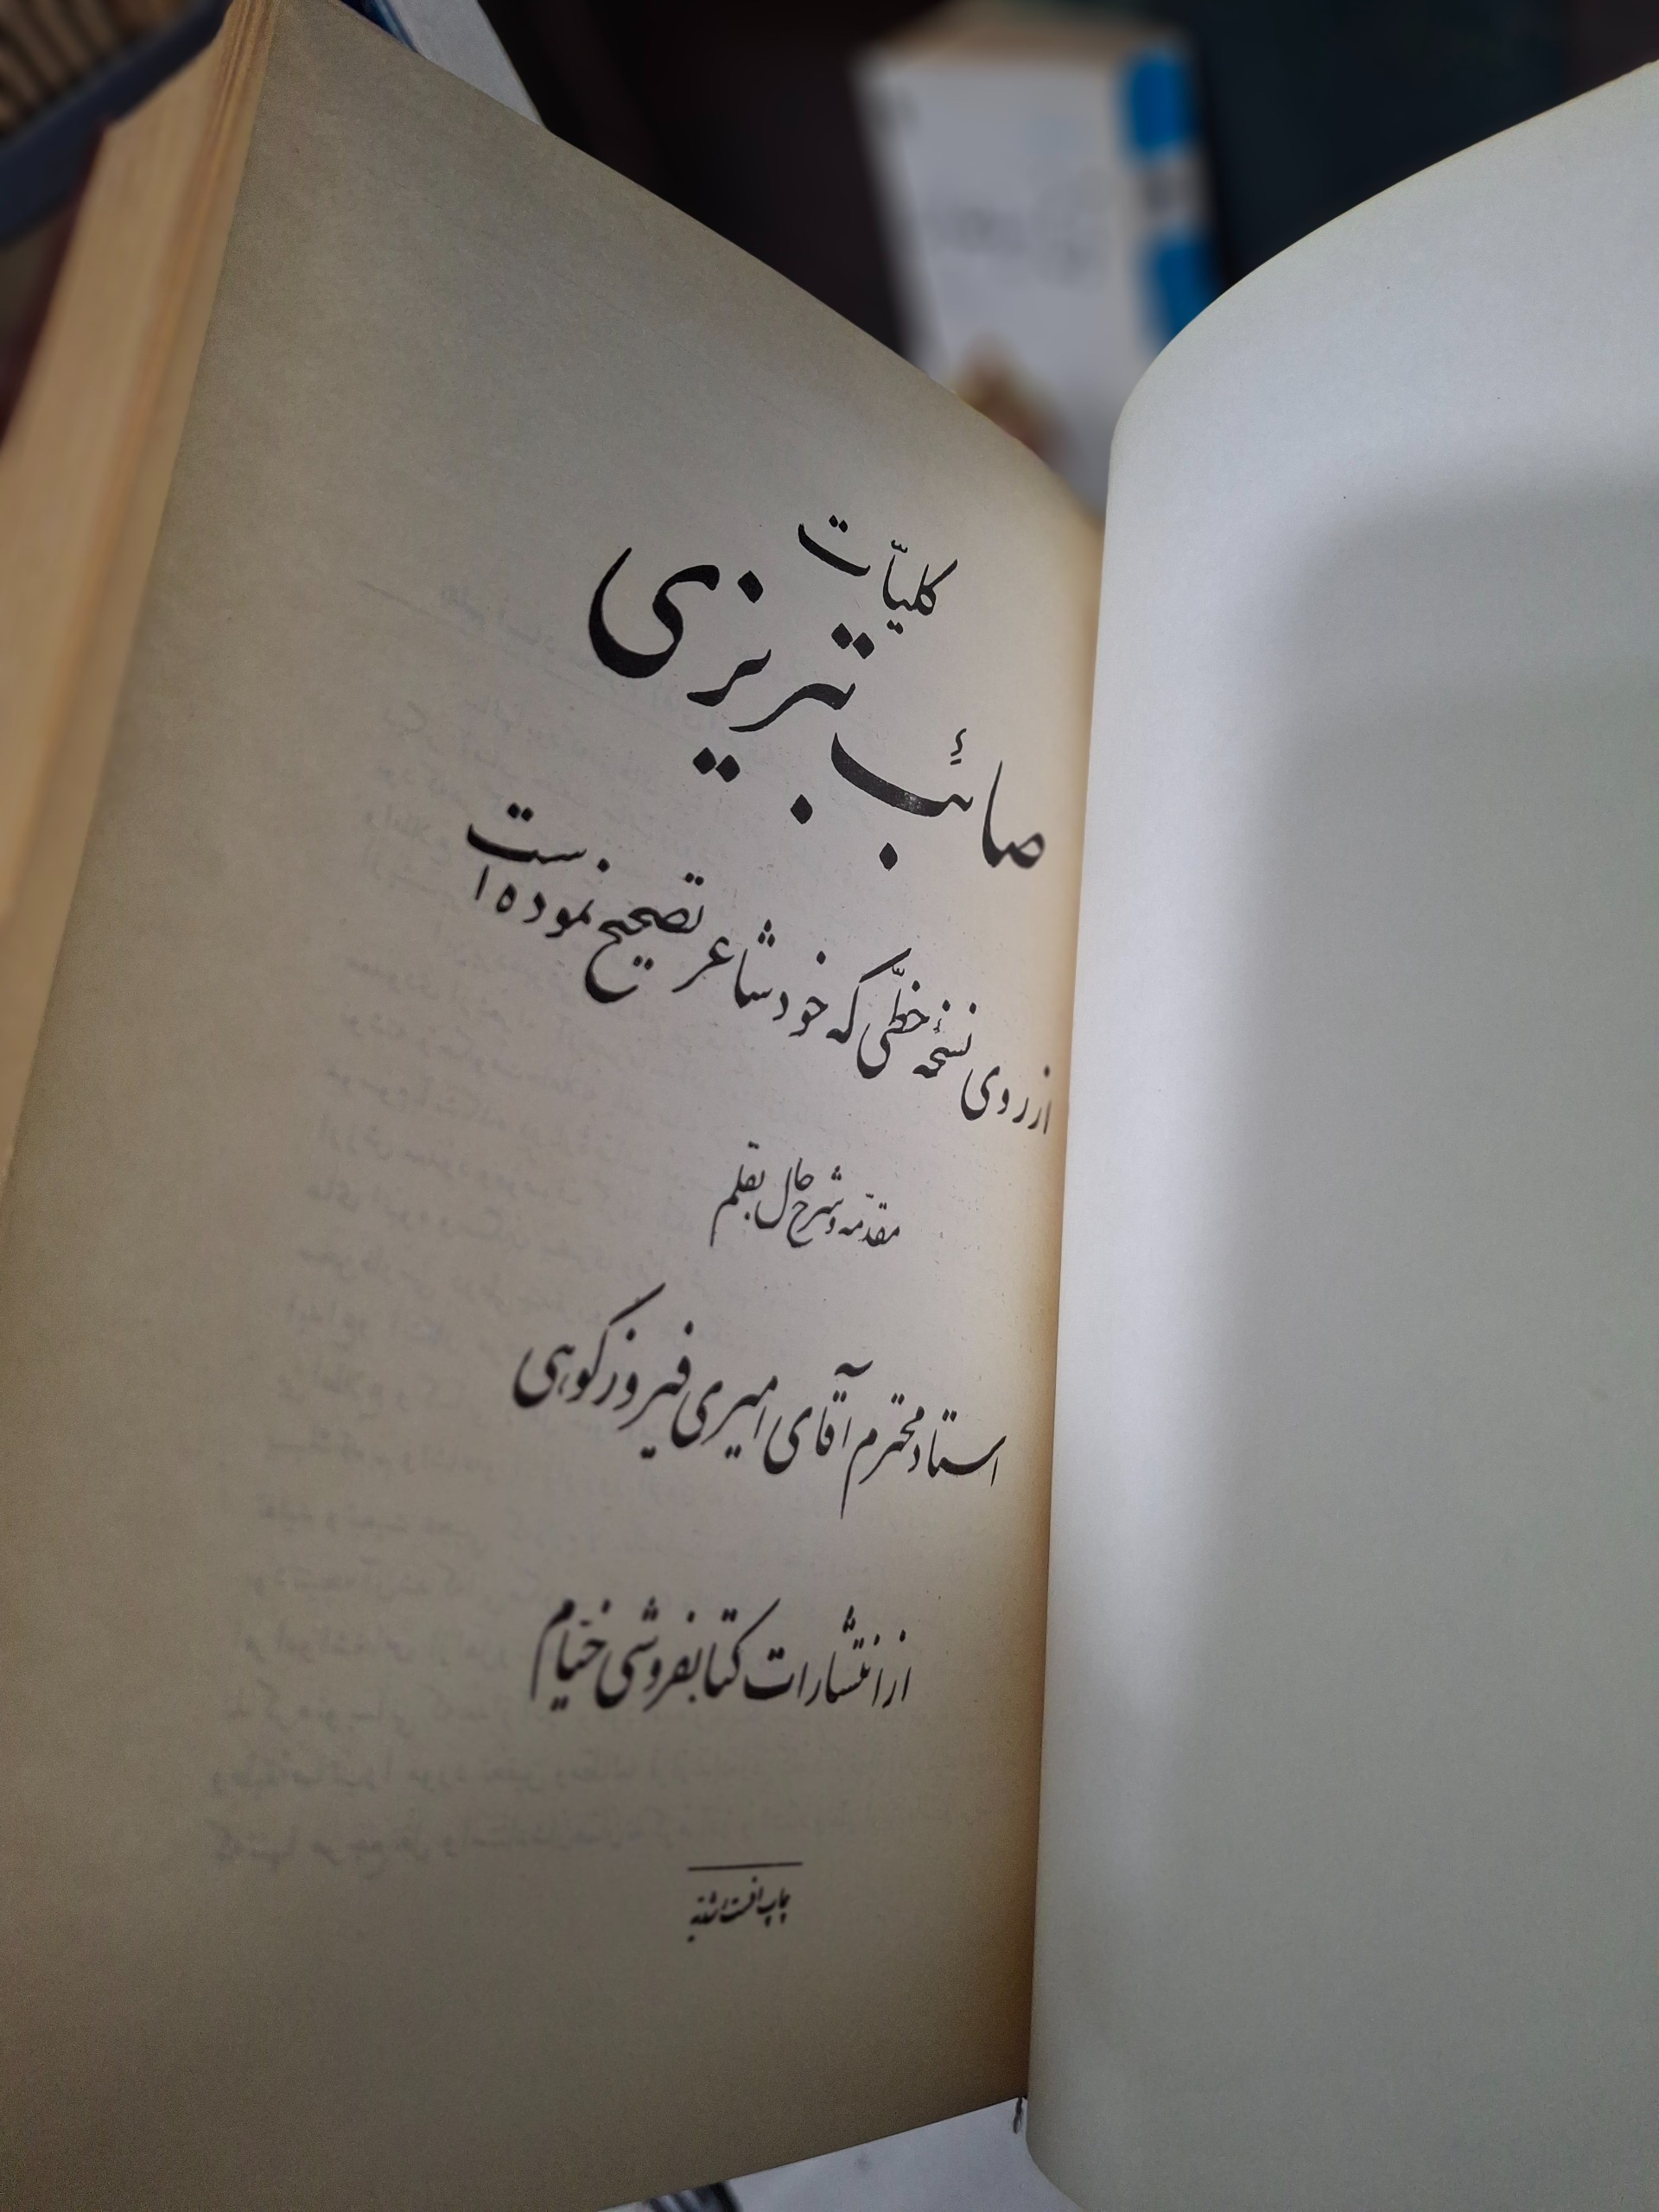 کلیّات
صائب تبریزی
از روی نسخهٔ خطّی که خود شاعر تصحیح نموده است
مقدّمه و شرح حال بقلم
استاد محترم آقای امیری فیروزکوهی
از انتشارات کتابفروشی خیّام
چاپ افست رشدیه